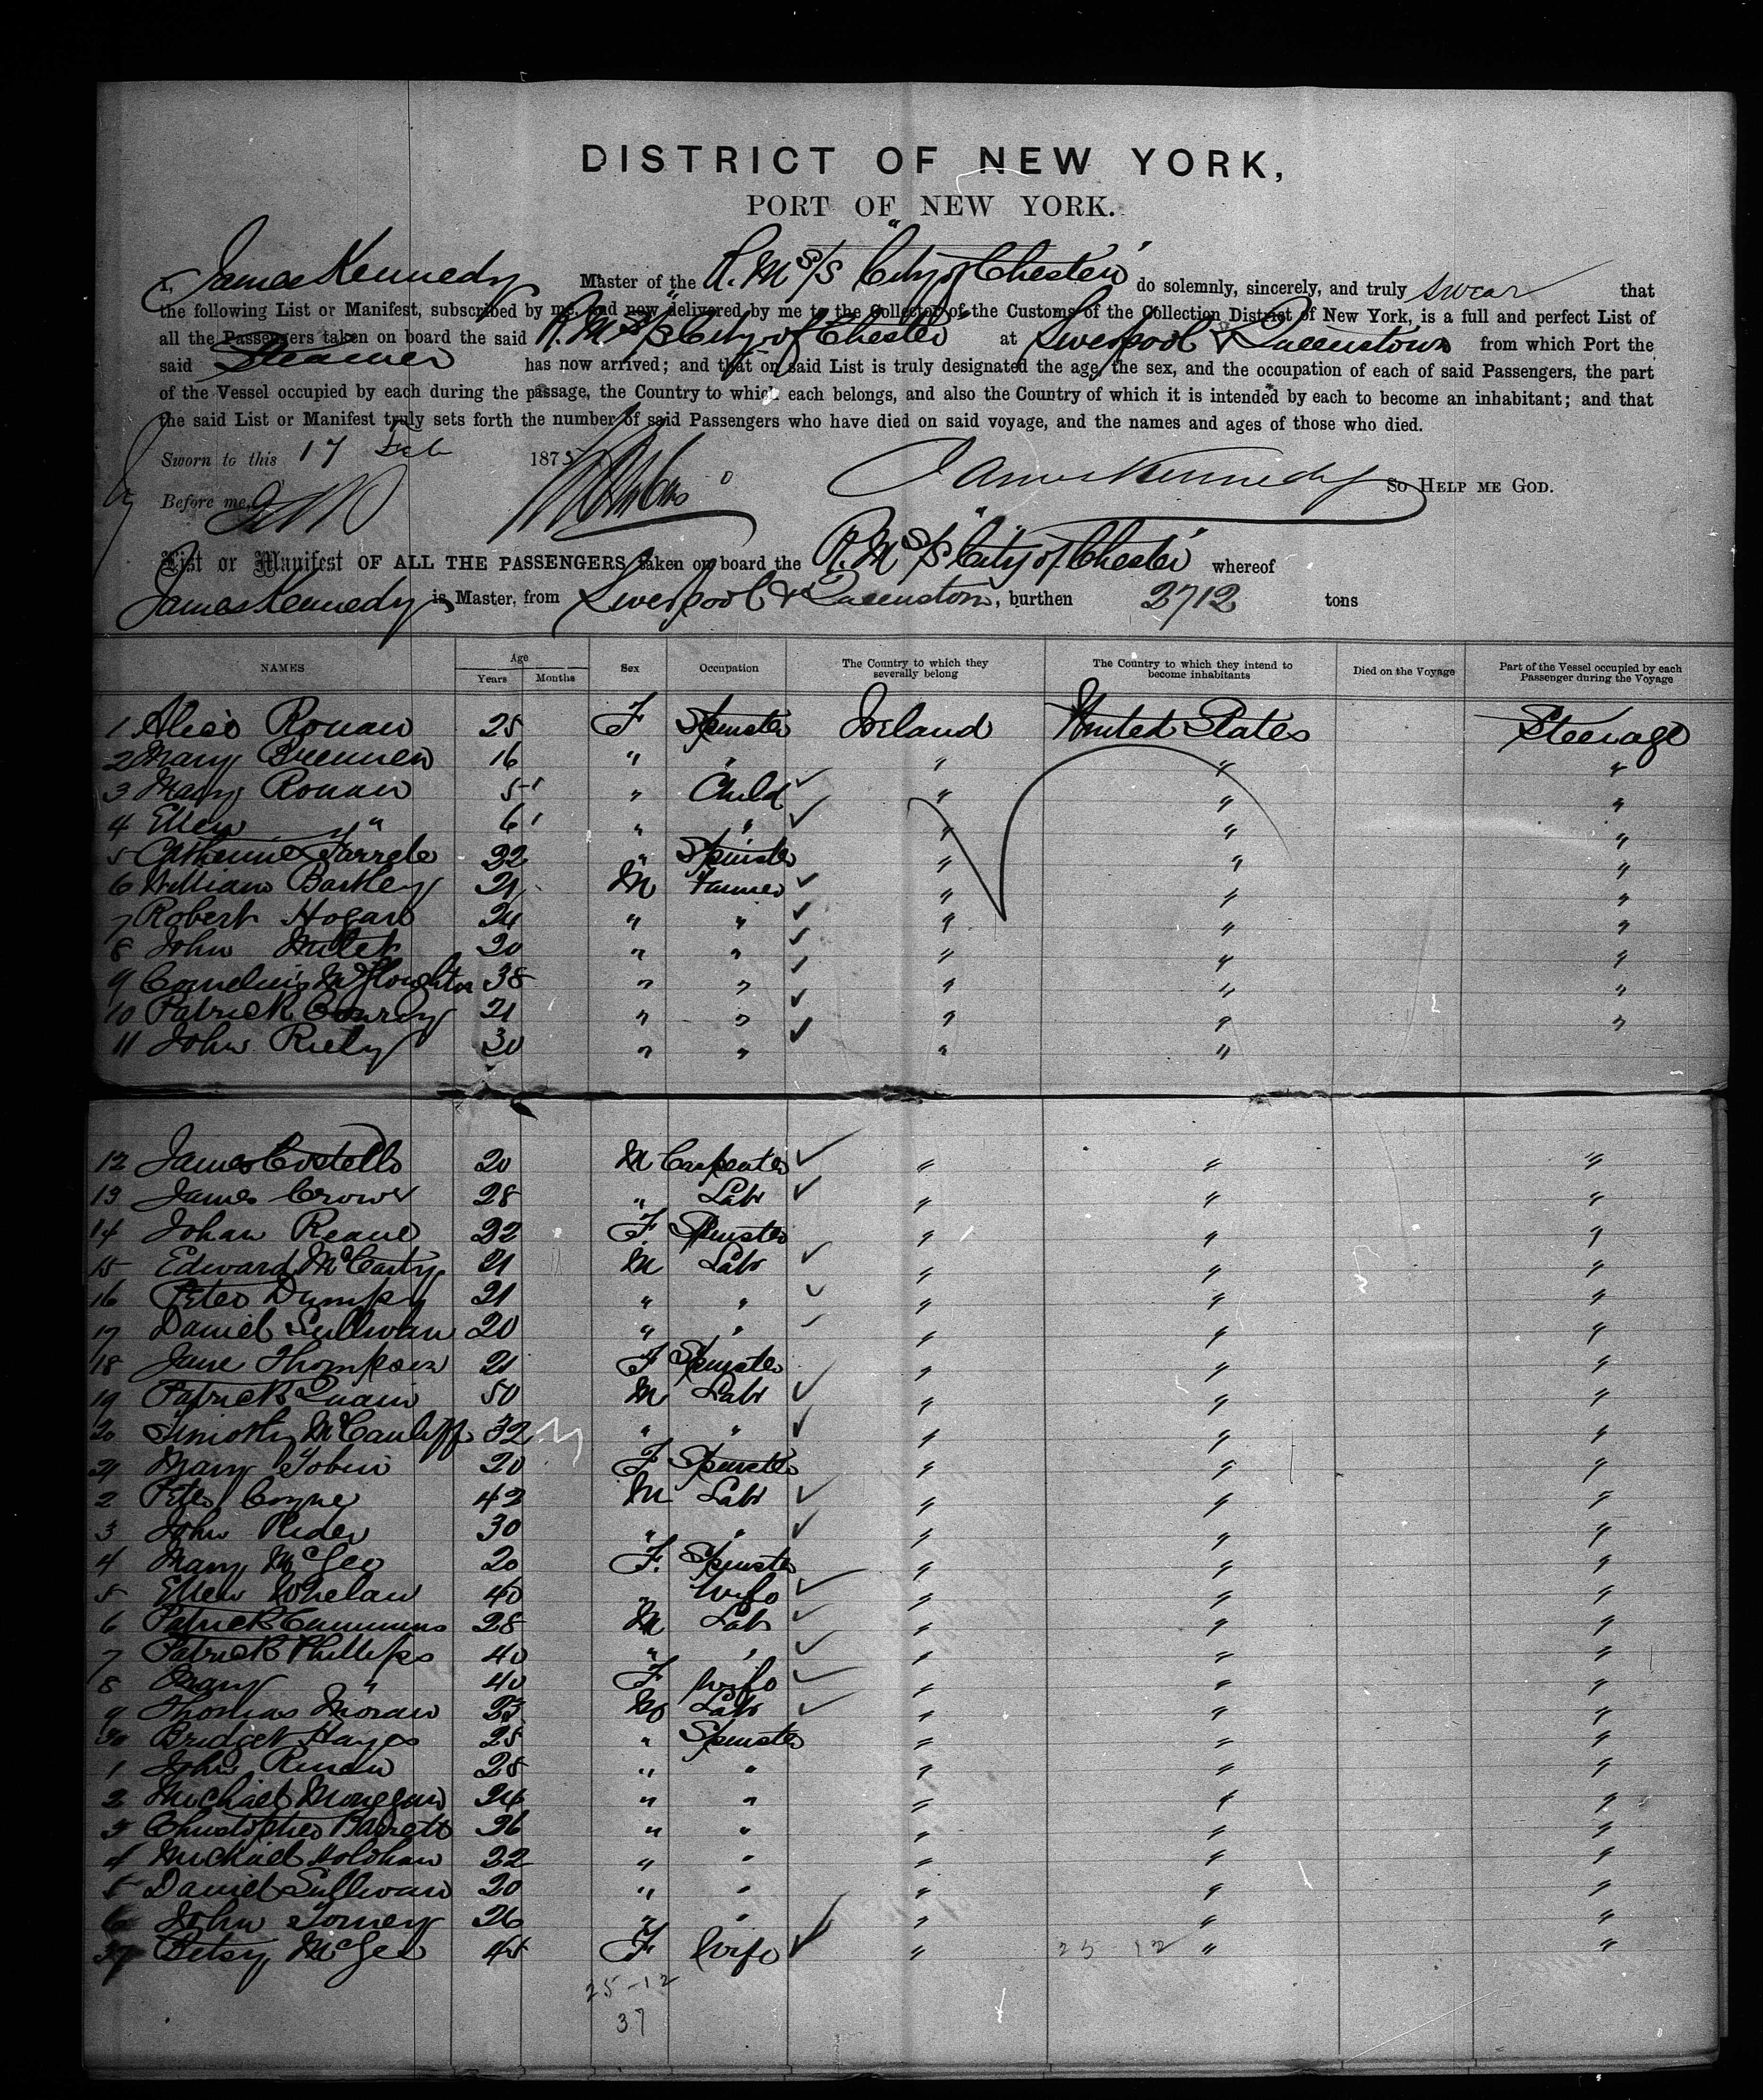 DISTRICT OF NEW YORK,
PORT OF NEW YORK.
I, James Kennedy Master of the R. M. S/S "City of Chester" do solemnly, sincerely, and truly swear that
the following List or Manifest, subscribed by me and now delivered by me to the Collector of the Customs of the Collection District of New York, is a full and perfect List of
all the Passengers taken on board the said R. M. S/S City of Chester at Liverpool & Queenstown from which Port the
said Steamer has now arrived; and that on said List is truly designated the age, the sex, and the occupation of each of said Passengers, the part
of the Vessel occupied by each during the passage, the Country to which each belongs, and also the Country of which it is intended by each to become an inhabitant; and that
the said List or Manifest truly sets forth the number of said Passengers who have died on said voyage, and the names and ages of those who died.
Sworn to this 17 Feb 1875
James Kennedy So HELP ME GOD.
Before me,
List or Manifest OF ALL THE PASSENGERS taken on board the R. M. S/S "City of Chester" whereof
James Kennedy is Master, from Liverpool & Queenstown, burthen 2712 tons
NAMES Age Years Months Sex Occupation The Country to which they severally belong The Country to which they intend to become inhabitants Died on the Voyage Part of the Vessel occupied by each Passenger during the Voyage
1 Alice Ronan 25 F Spinster Ireland United States Steerage
2 Mary Brennen 16 " " " " "
3 Mary Ronan 5 " Child " " "
4 Ellen " 6 " " " " "
5 Catherine Farrele 22 " Spinster " " "
6 William Bartley 21 M Farmer " " "
7 Robert Hogan 24 " " " " "
8 John 20 " " " " "
9 Cornelius 38 " " " " "
10 Patrick 21 " " " " "
11 John Riely 30 " " " "
12 James Costello 20 M Carpenter " " "
13 James Crowe 28 " Labr " " "
14 Johan Reane 22 F Spinster " " "
15 Edward McCarty 21 M Labr " " "
16 Peter Dumphy 21 " " " " "
17 Daniel Sullivan 20 " " " " "
18 Jane Thompson 21 F Spinster " " "
19 Patrick Quain 50 M Labr " " "
20 Timothy McCauliff 32 " " " " "
21 Mary Tobin 20 F Spinster " " "
2 Peter Coyne 42 M Labr " " "
3 John Rider 30 " " " " "
4 Mary McGee 20 F. Spinster " " "
5 Ellen Whelan 40 " Wife " " "
6 Patrick Cummins 28 M Labr " " "
7 Patrick Phillips 40 " " " " "
8 Mary " 40 F Wife " " "
9 Thomas Moran 23 M Labr " " "
30 Bridget Hayes 25 " Spinster " " "
1 John 28 " " " " "
2 Michael 24 " " " " "
3 Christopher Barrett 36 " " " " "
4 Michael Holohan 22 " " " " "
5 Daniel Sullivan 20 " " " " "
6 John Torney 26 " " " " "
37 Betsy McGee 45 F Wife " 25 12 " "
25-12
37